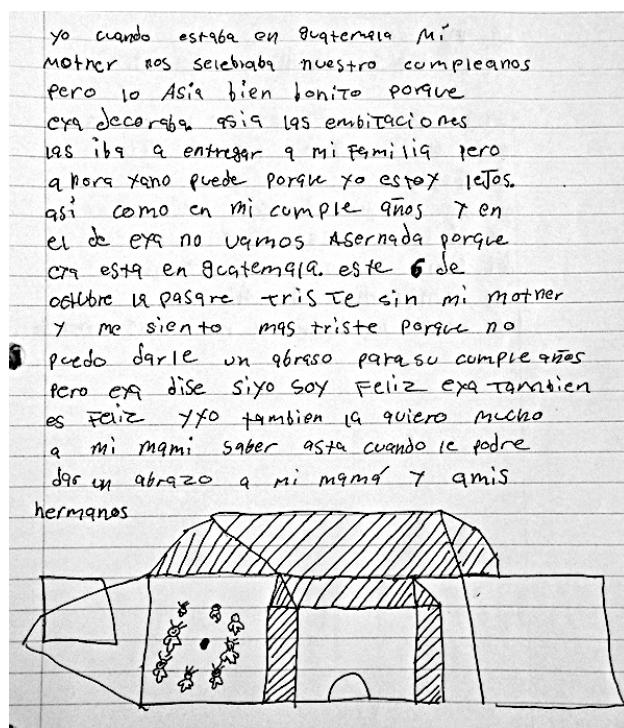 yo cuando estaba en guatemala mi
motner nos selebraba nuestro cumpleanos
pero lo Asia bien bonito porque
eya decoraba. asia las embitaciones
las iba a entregar a mi familia pero
ahora yano puede porque yo estoy lejos.
así como en mi cumple años y en
el de eya no vamos Asernada porque
eya esta en guatemala. este 6 de
octubre la pasare triste sin mi motner
y me siento mas triste porque no
puedo darle un abraso para su cumple años
pero eya dise siyo soy Feliz eya Tambien
es Feliz yyo tambien la quiero mucho
a mi mami saber asta cuando le podre
dar un abrazo a mi mamá y amis
hermanos